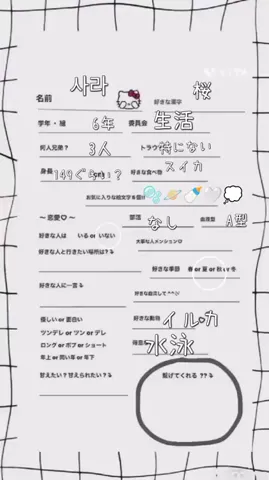 名前 사라 好きな漢字 桜
学年・組 6年 委員会 生活
何人兄弟? 3人 トラウマ 特にない
身長 149ぐらい? 好きな食べ物 スイカ
お気に入りな絵文字を 🫧🪐🍼🤍💭
〜恋愛♡〜 部活 なし 血液型 A型
好きな人は いる or いない 大事な人メンションロ
好きな人と行きたい場所は?
好きな季節 春 or 夏 or 秋 or 冬
好きな人に一言 好きな自流して^^
優しい or 面白い 好きな動物 イルカ
ツンデレ or ツン or デレ 水泳
ロング or ボブ or ショート
年上 or 同い年 or 年下 繋げてくれる ??
甘えたい?甘えられたい?